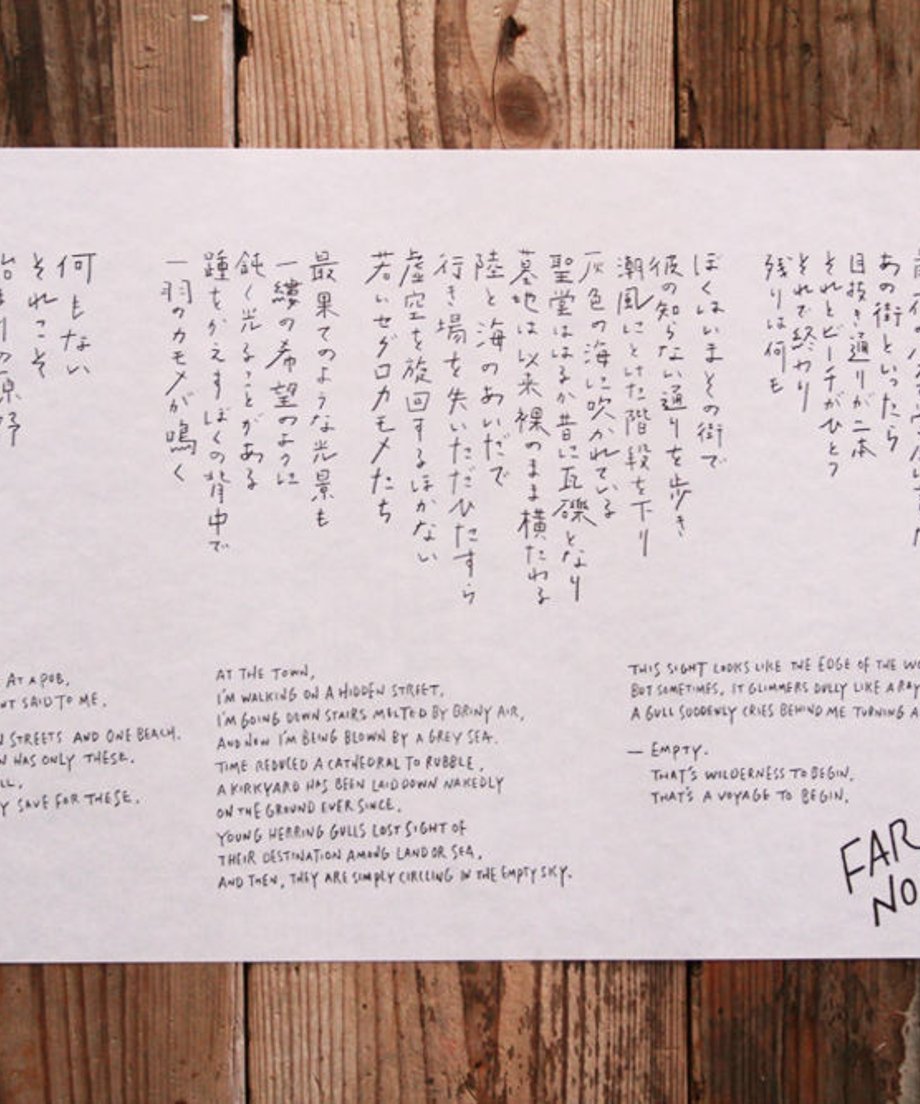 あの街といったら
目抜き通りが二本
それとビーチがひとつ
それで終わり
残りは何も
ぼくはいまその街で
彼の知らない通りを歩き
潮風にとけた階段を下り
灰色の海に吹かれている
聖堂ははるか昔に瓦礫となり
墓地は以来裸のまま横たわる
陸と海のあいだで
行き場を失いただひたすら
虚空を旋回するほかない
若いセグロカモメたち
最果てのような光景も
一縷の希望のように
鈍く光ることがある
踵をかえすぼくの背中で
一羽のカモメが鳴く
何もない
それこそ
始まりの原野
AT A PUB,
NT SAID TO ME.
N STREETS AND ONE BEACH.
N HAS ONLY THESE.
LL,
Y SAVE FOR THESE.
AT THE TOWN,
I'M WALKING ON A HIDDEN STREET.
I'M GOING DOWN STAIRS MELTED BY BRINY AIR,
AND NOW I'M BEING BLOWN BY A GREY SEA.
TIME REDUCED A CATHEDRAL TO RUBBLE,
A KIRKYARD HAS BEEN LAID DOWN NAKEDLY
ON THE GROUND EVER SINCE.
YOUNG HERRING GULLS LOST SIGHT OF
THEIR DESTINATION AMONG LAND OR SEA,
AND THEN, THEY ARE SIMPLY CIRCLING IN THE EMPTY SKY.
THIS SIGHT LOOKS LIKE THE EDGE OF THE WO
BUT SOMETIMES, IT GLIMMERS DULLY LIKE A RAY
A GULL SUDDENLY CRIES BEHIND ME TURNING A
— EMPTY.
THAT'S WILDERNESS TO BEGIN,
THAT'S A VOYAGE TO BEGIN.
FAR
NO